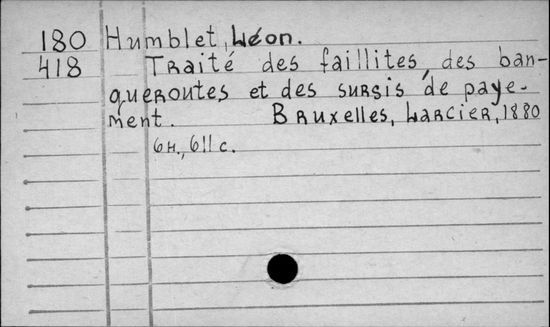 180 Humblet, Léon.
418 Traité des faillites, des ban-
queroutes et des sursis de paye-
ment. Bruxelles, Larcier, 1880
6H., 611 c.